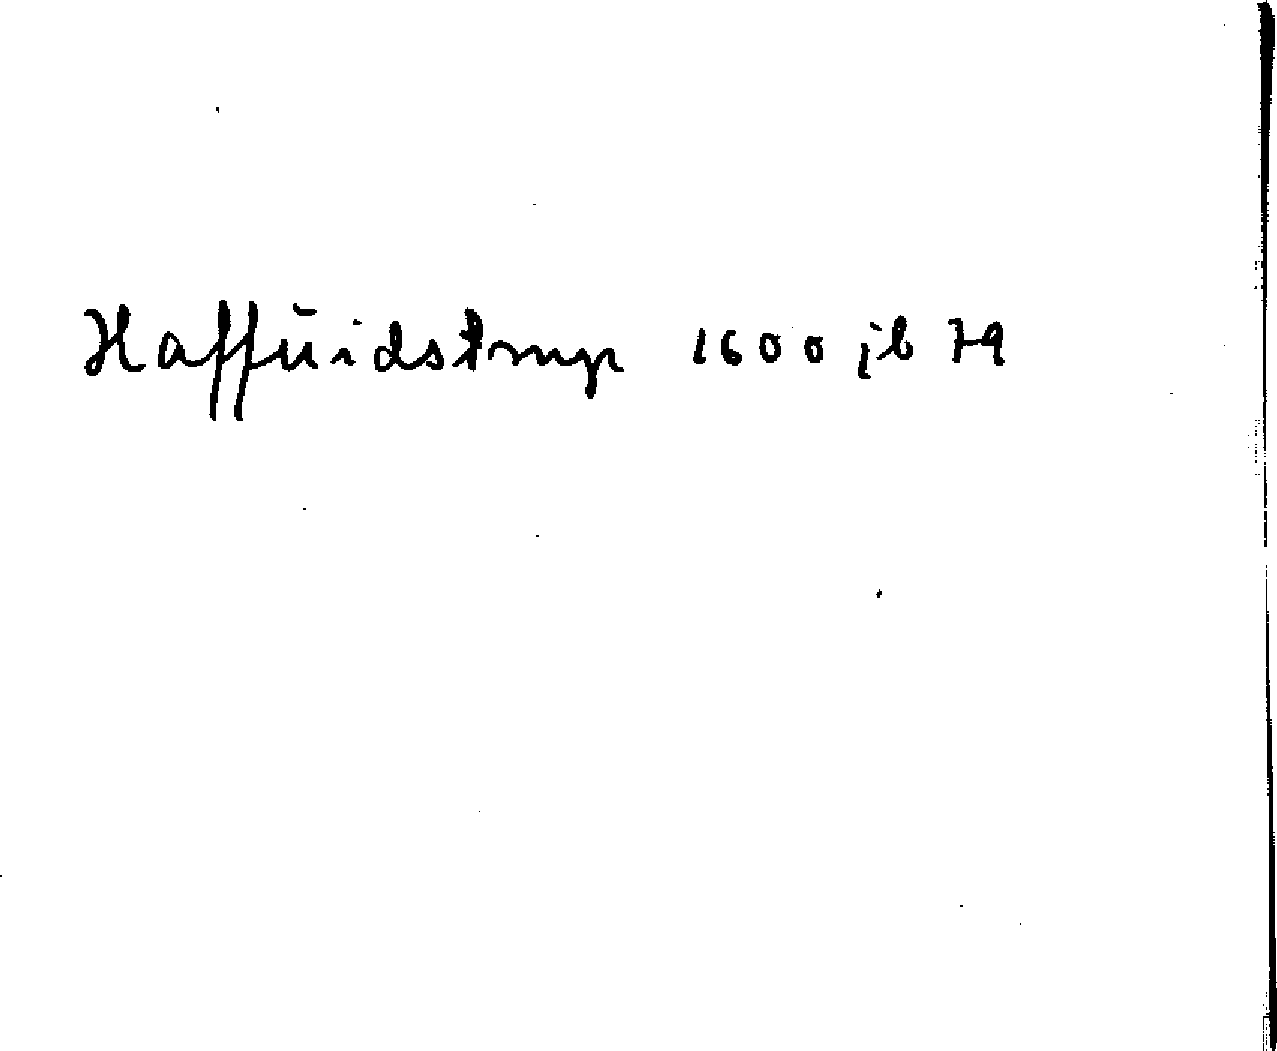 Haffúidstrup 1600 jb 79